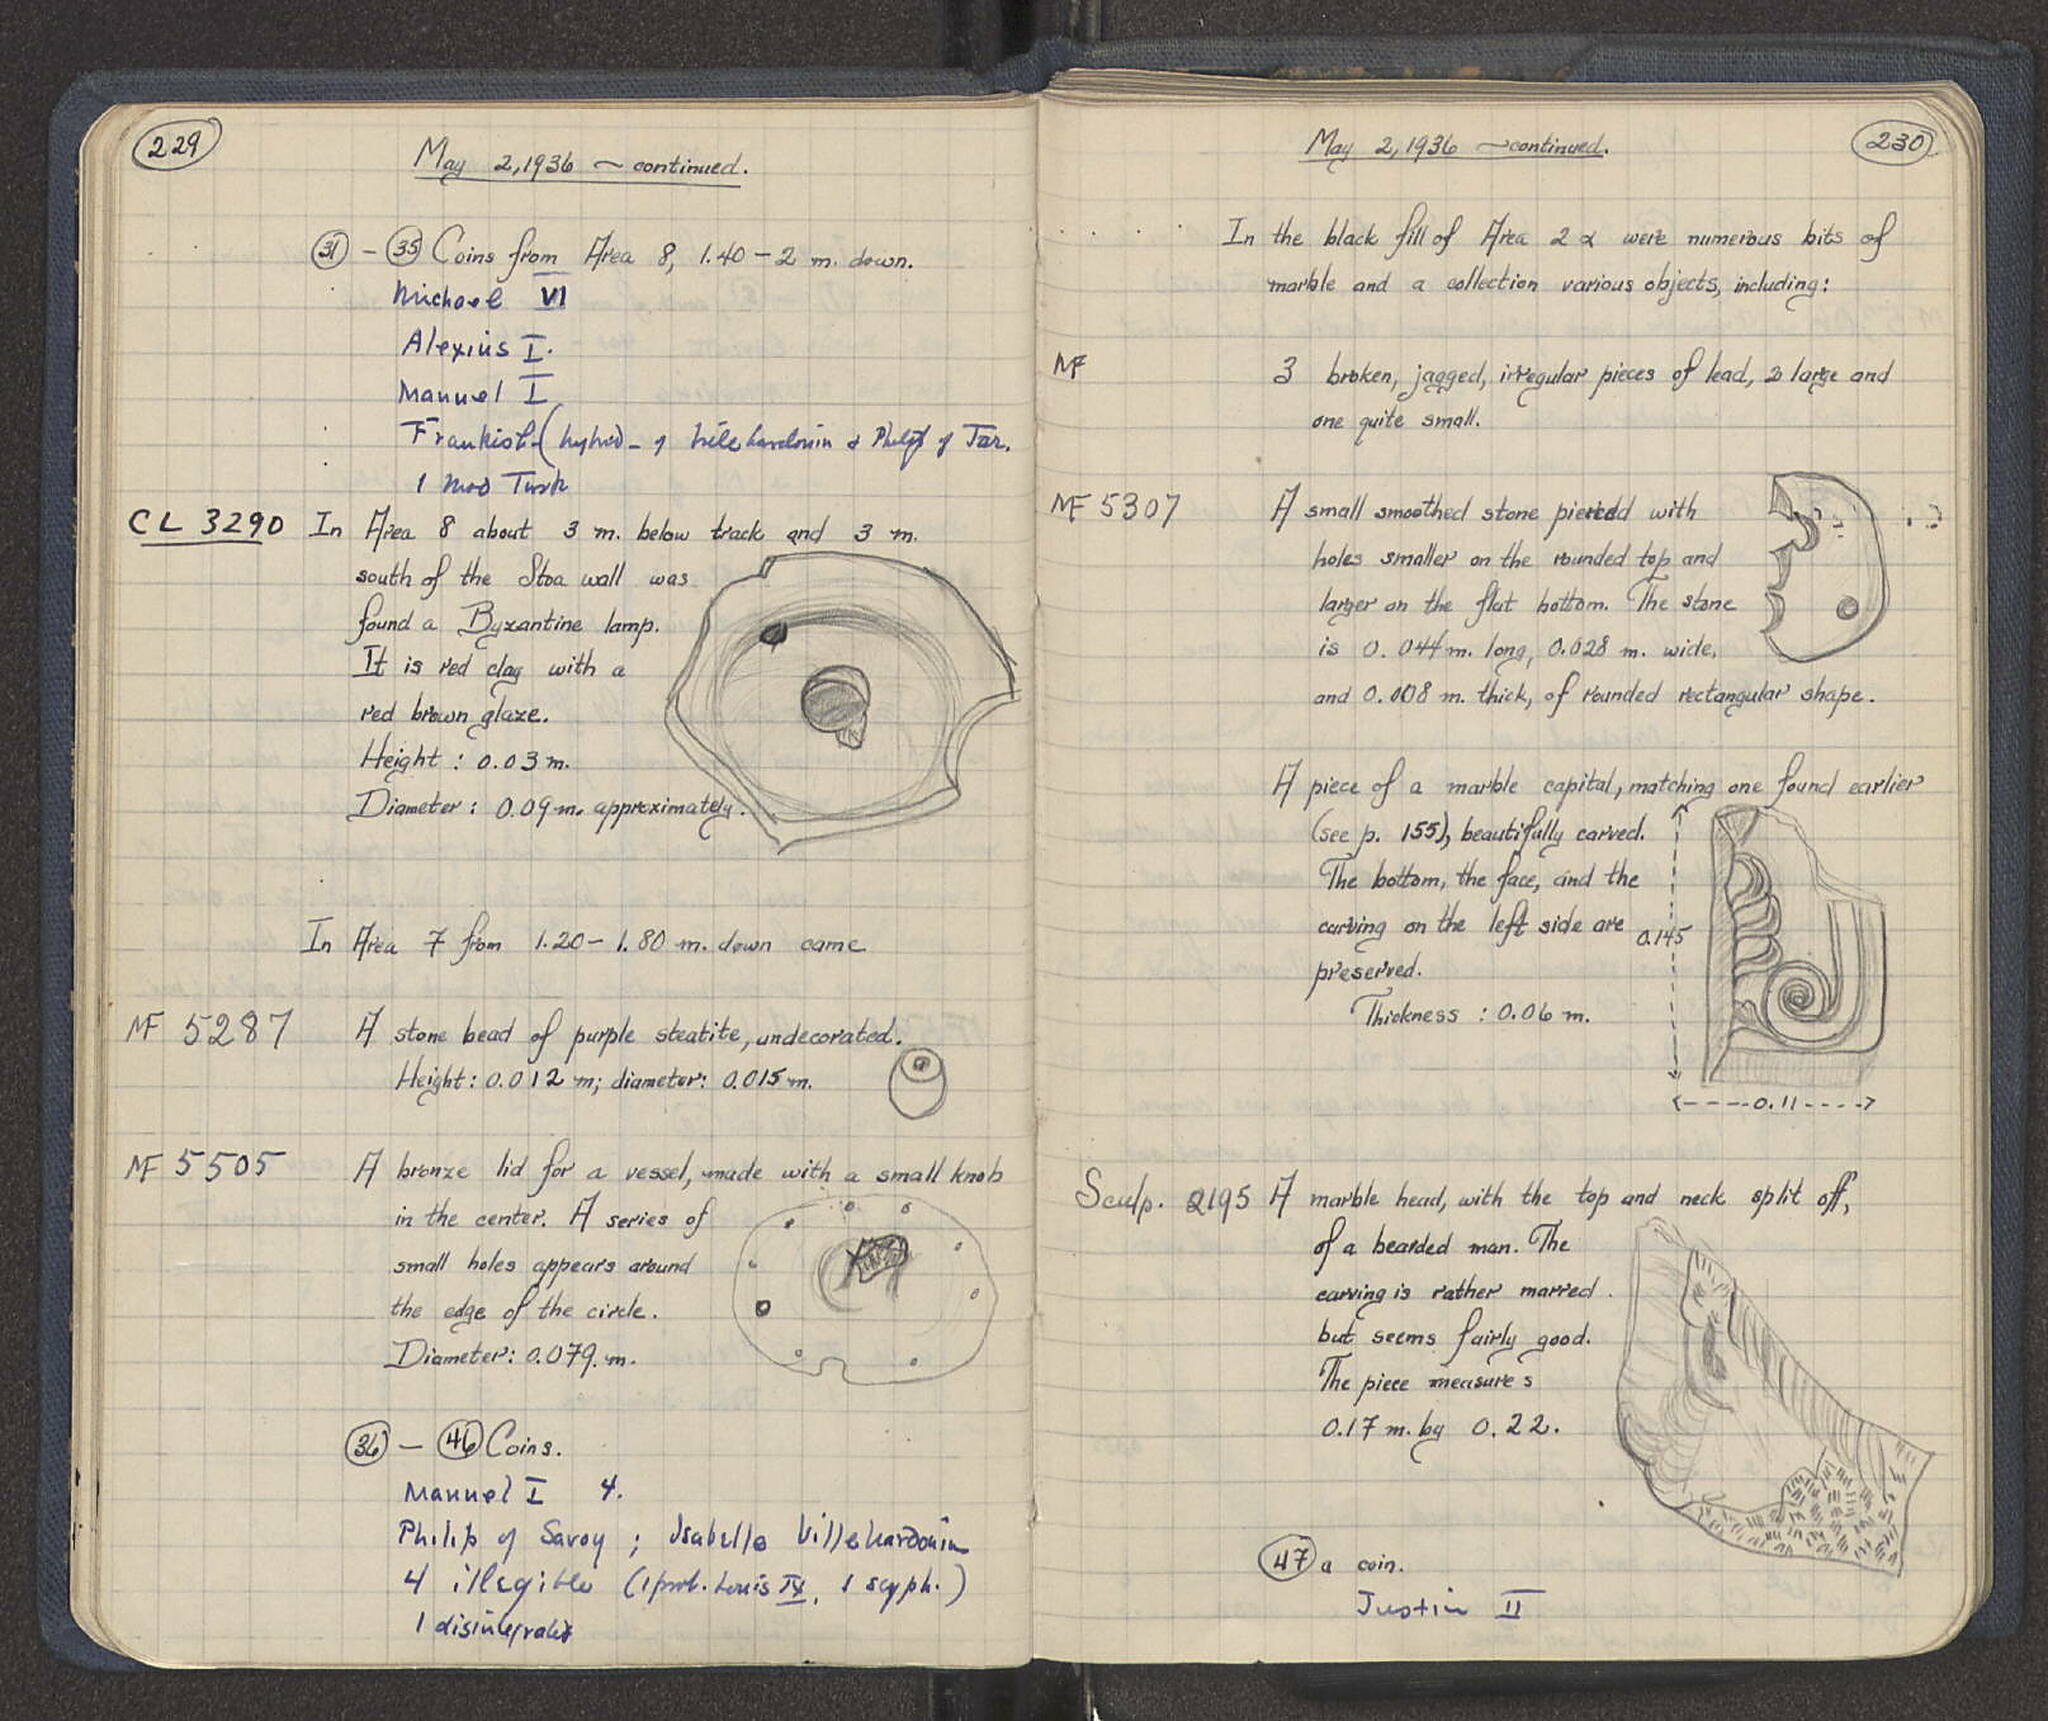 229
May 2, 1936 ~ continued.
31 - 35 Coins from Area 8, 1.40 - 2 m. down.
Michael VI
Alexius I.
Manuel I
Frankish (hybrid - of Villehardouin & Philip of Tar.
1 Mod Turk
CL 3290 In Area 8 about 3 m. below track and 3 m.
south of the Stoa wall was
found a Byzantine lamp.
It is red clay with a
red brown glaze.
Height : 0.03 m.
Diameter : 0.09 m. approximately.
In Area 7 from 1.20 - 1.80 m. down came
MF 5287 A stone bead of purple steatite, undecorated.
Height : 0.012 m; diameter: 0.015 m.
MF 5505 A bronze lid for a vessel, made with a small knob
in the center. A series of
small holes appears around
the edge of the circle.
Diameter: 0.079. m.
36 - 46 Coins.
Manuel I 4.
Philip of Savoy ; Isabelle Villehardouin
4 illegible (1 prob. Louis IX, 1 scyph.)
1 disintegrated
230
May 2, 1936 ~ continued.
In the black fill of Area 2 α were numerous bits of
marble and a collection various objects, including:
MF 3 broken, jagged, irregular pieces of lead, 2 large and
one quite small.
MF 5307 A small smoothed stone pierced with
holes smaller on the rounded top and
larger on the flat bottom. The stone
is 0.044 m. long, 0.028 m. wide,
and 0.008 m. thick, of rounded rectangular shape.
A piece of a marble capital, matching one found earlier
(see p. 155), beautifully carved.
The bottom, the face, and the
carving on the left side are
preserved.
Thickness : 0.06 m.
0.145
0.11
Sculp. 2195 A marble head, with the top and neck split off,
of a bearded man. The
carving is rather marred
but seems fairly good.
The piece measures
0.17 m. by 0.22.
47 a coin.
Justin II